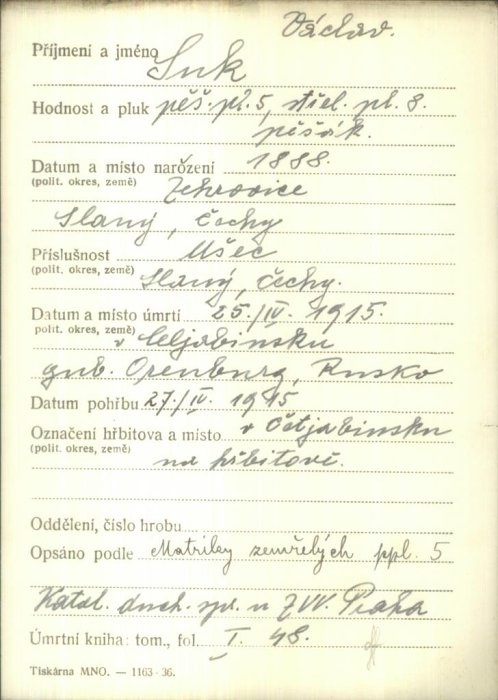 Václav.
Příjmení a jméno Suk
Hodnost a pluk pěš. pl. 5, střel. pl. 8.
pěšák.
Datum a místo narození 1888.
(polit. okres, země) Žehrovice
Slaný, Čechy
Příslušnost Ušec
(polit. okres, země) Slaný, Čechy.
Datum a místo úmrtí 25./IV. 1915.
polit. okres, země) v Čeljabinsku
gub. Orenburg, Rusko
Datum pohřbu 27./IV. 1915
Označení hřbitova a místo v Čeljabinsku
(polit. okres, země) na hřbitově.
Oddělení, číslo hrobu
Opsáno podle Matriky zemřelých ppl. 5
Katol. duch. spr. u ZVV. Praha
Úmrtní kniha: tom., fol. I. 48.
Tiskárna MNO. — 1163-36.